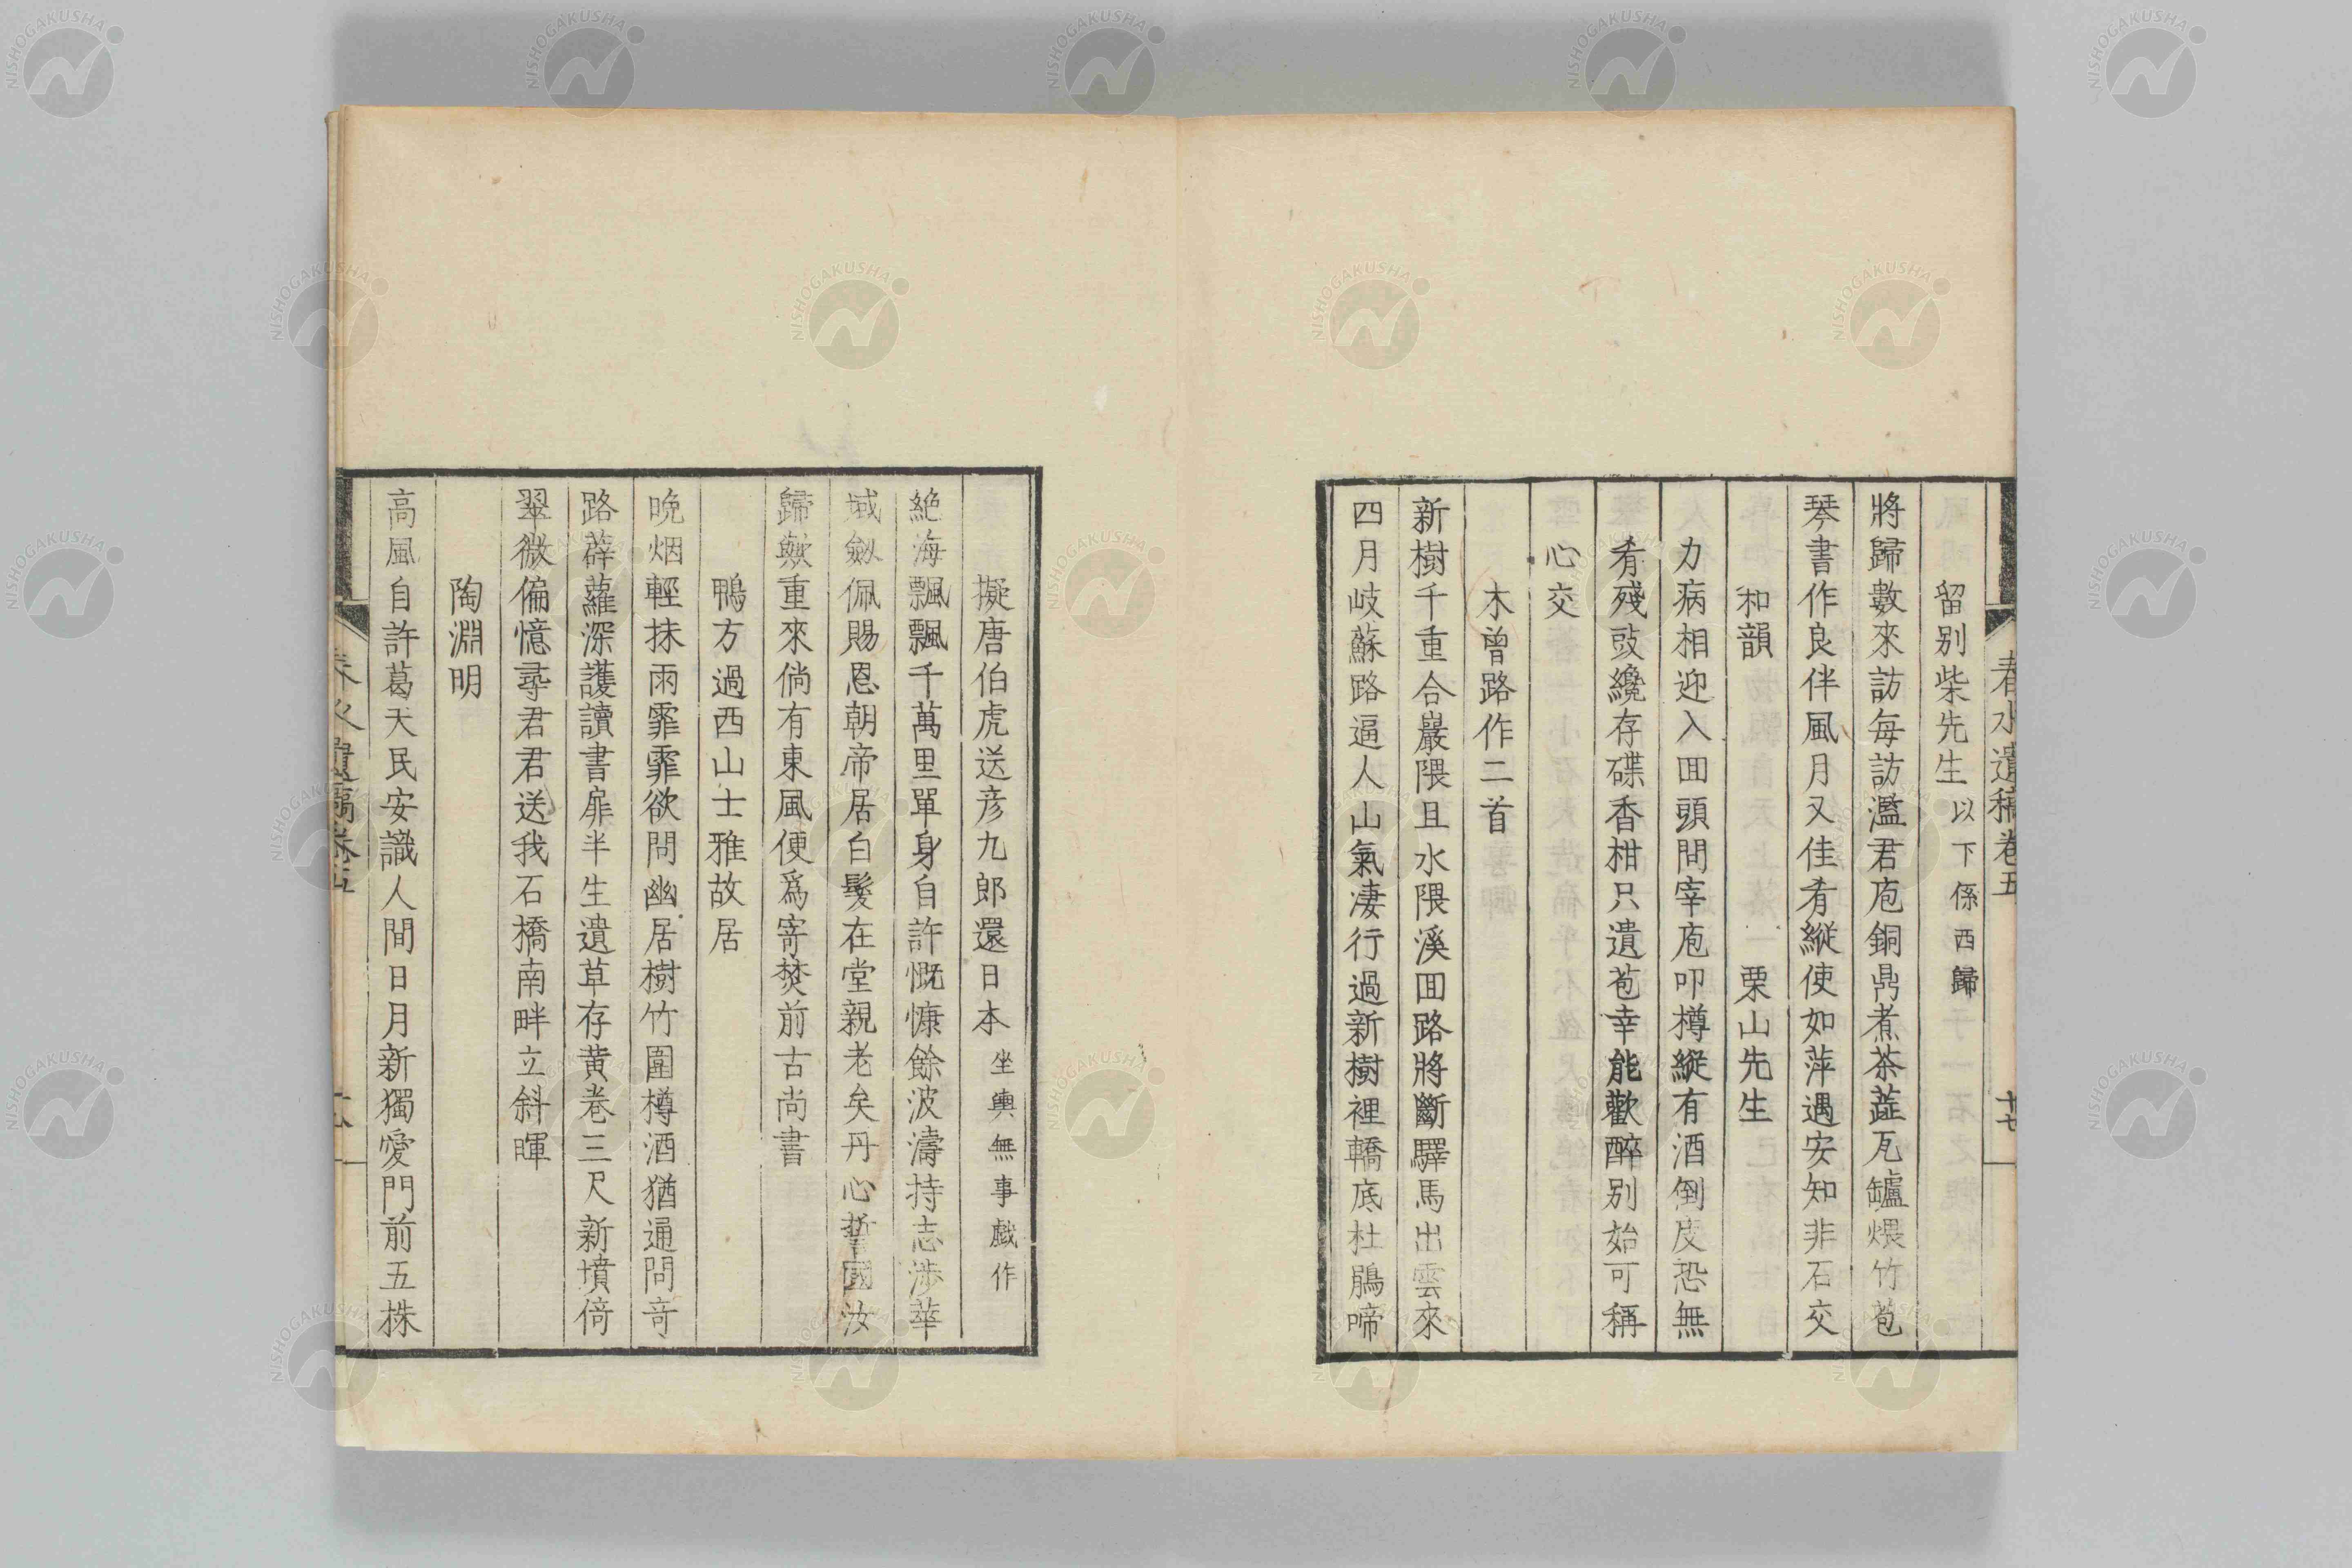 春水遺稿卷五
廿七
留别柴先生以下係西歸
將歸數來訪每訪濫君庖銅鼎煮茶蔬瓦罏煨竹苞
琴書作良伴風月又佳肴縱使如萍遇安知非石交
和韻 栗山先生
力病相迎入回頭問宰庖叩樽縱有酒倒皮恐無
肴殘豉纔存碟香柑只遺苞幸能歡醉别始可稱
心交
木曾路作二首
新樹千重合巖隈且水隈溪回路將斷驛馬出雲來
四月岐蘇路逼人山氣凄行過新樹裡轎底杜鵑啼
擬唐伯虎送彦九郎還日本坐輿無事戲作
絶海飄飄千萬里單身自許慨慷餘波濤持志渉華
域劔佩賜恩朝帝居白髮在堂親老矣丹心誓國汝
歸歟重來倘有東風便爲寄焚前古尚書
鴨方過西山士雅故居
晩烟輕抹雨霏霏欲問幽居樹竹圍樽酒猶通問奇
路薜蘿深護讀書扉半生遺草存黄卷三尺新墳倚
翠微偏憶尋君君送我石橋南畔立斜暉
陶淵明
高風自許葛天民安識人間日月新獨愛門前五株
春水遺稿卷五